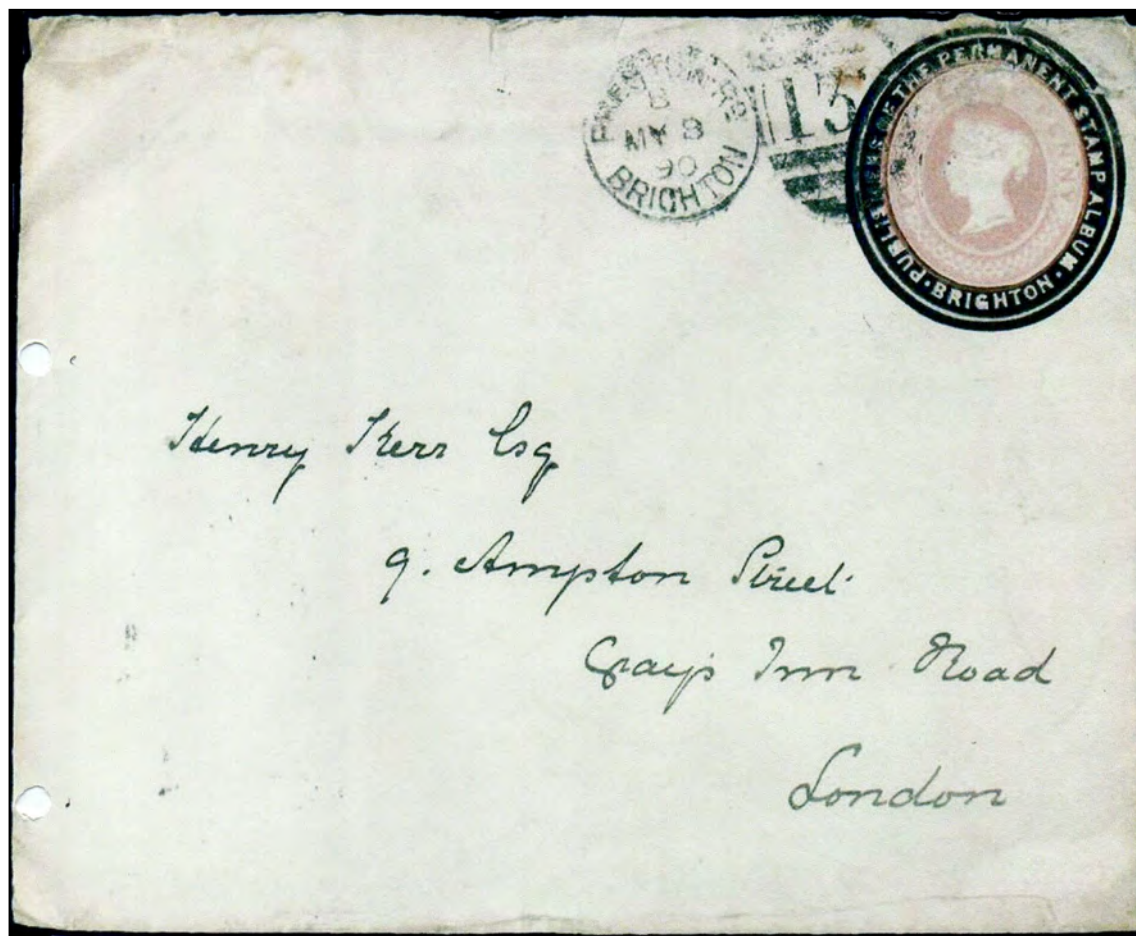 PRESTON RD
B
MY 8
90
BRIGHTON
PUBLISHERS OF THE PERMANENT STAMP ALBUM · BRIGHTON ·
PENNY
Henry Kerr Esq
9. Ampton Street
Grays Inn Road
London